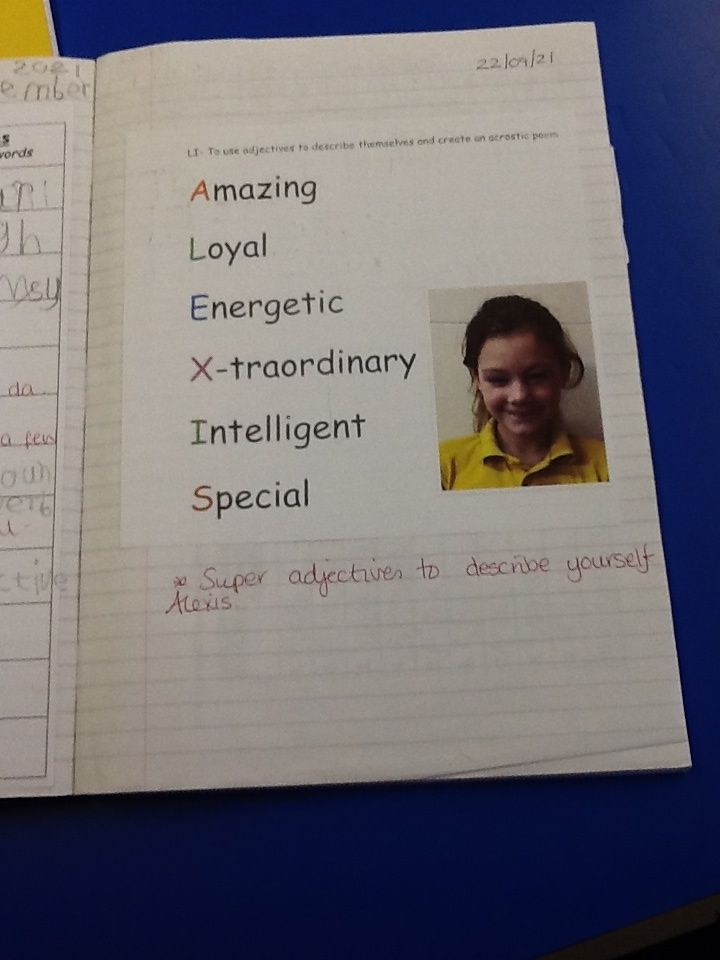 2021
ember
s
words
gh
da
a few
ctive
22/09/21
LI- To use adjectives to describe themselves and create an acrostic poem
Amazing
Loyal
Energetic
X-traordinary
Intelligent
Special
Super adjectives to describe yourself
Alexis